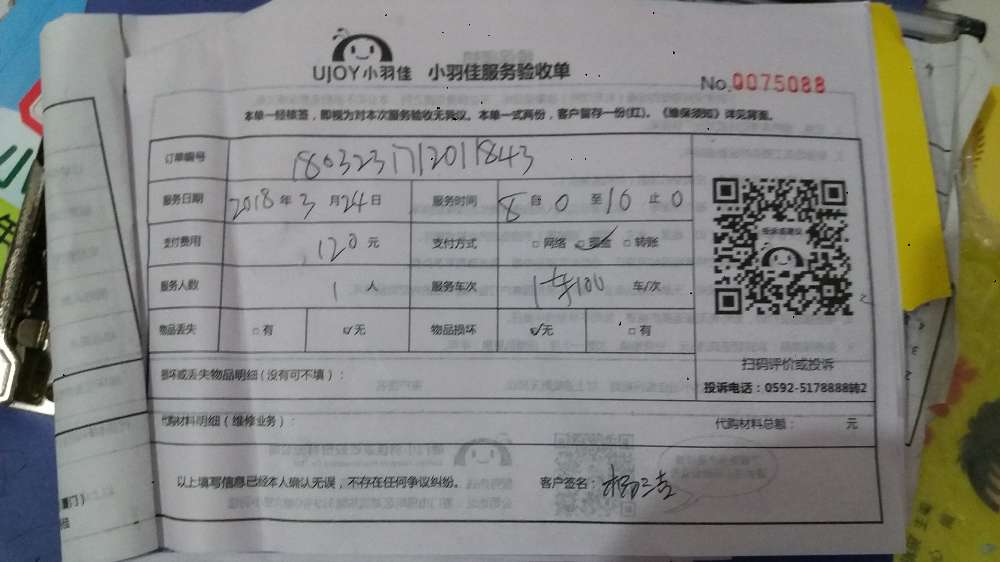 UJOY小羽佳 小羽佳服务验收单
No.0075088
本单一经核签,即视为对本次服务验收无异议。本单一式两份,客户留存一份(红)。《维保须知》详见背面。
订单编号 1803231712011843
服务日期 2018年3月24日 服务时间 8自0至10止0
支付费用 120元 支付方式 □网络 ☑现金 □转账
服务人数 1人 服务车次 车/次
物品丢失 □有 ☑无 物品损坏 ☑无 □有
投诉或建议
扫码评价或投诉
投诉电话:0592-5178888转2
损坏或丢失物品明细(没有可不填):
代购材料明细(维修业务): 代购材料总额: 元
以上填写信息已经本人确认无误,不存在任何争议纠纷。 客户签名: